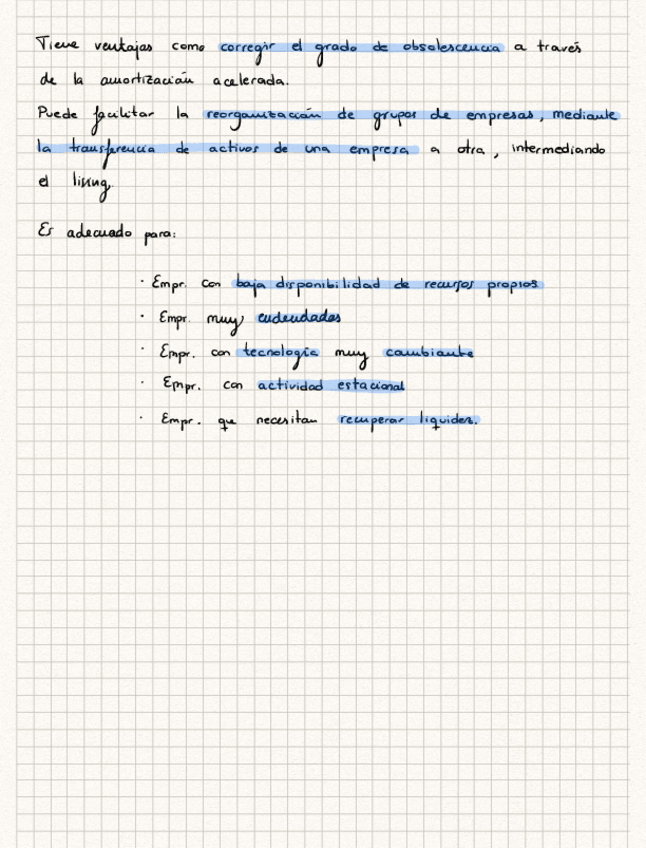 Tiene ventajas como corregir el grado de obsolescencia a través
de la amortización acelerada.
Puede facilitar la reorganización de grupos de empresas, mediante
la transferencia de activos de una empresa a otra, intermediando
el living.
Es adecuado para:
· Empr. con baja disponibilidad de recursos propios
· Empr. muy endeudadas
· Empr. con tecnología muy cambiante
· Empr. con actividad estacional
· Empr. que necesitan recuperar liquidez.